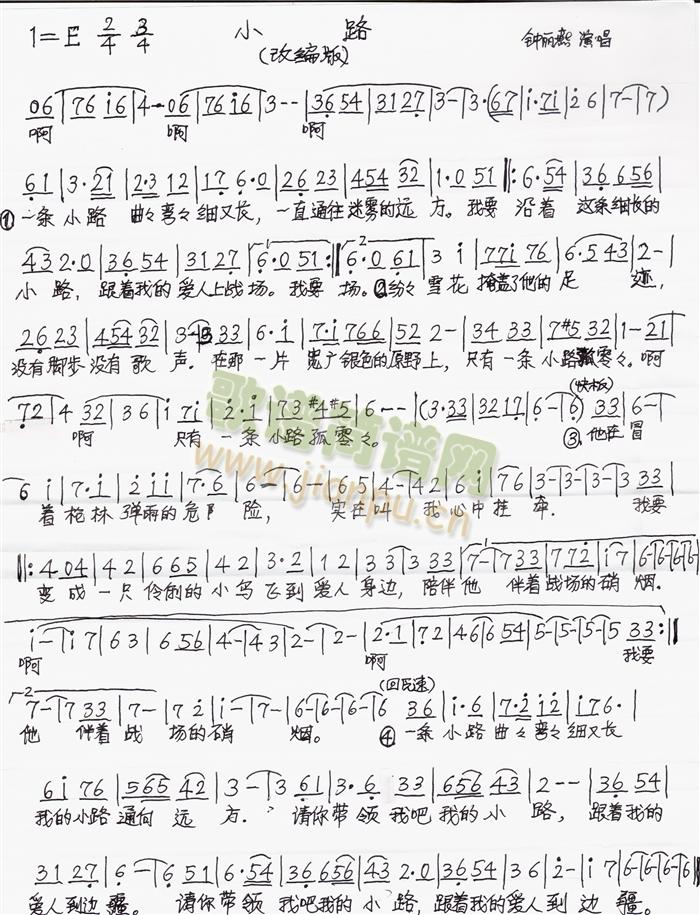 1=E 2/4 3/4 小 路 钟丽燕 演唱
(改编版)
06|76 i6|4-06|76 i6|3--|36 54|31 27|3-|3·(67|i·7i|26|7-|7)
啊 啊 啊
61|3·21|2·3 12|17 6·0|26 23|454 32|1·0 51|:6·54|36 656|
①一条 小路 曲々弯々细又长，一直通往迷雾的远 方。我要 沿着 这条细长的
43 2·0|36 54|31 27|6·0 51:|6·0 61|3 i|77i 76|6·5 43|2-|
小 路，跟着我的爱人上战场。我要 场。②纷々 雪花 掩盖了他的 足 迹，
26 23|454 32|3-|3 33|6·i|7·i 766|52 2-|34 33|7#5 32|1-21|
没有脚步没有 歌 声．在那 一 片 宽广银色的原野上，只有 一条 小路孤零々。啊
72|4 32|36|i 7i|2·i|73 #4#5|6--|(3·33|32 17|6-|6) 33|6-|
(快板)
啊 只有 一 条 小路孤零々。 ③他在 冒
6 i|7·i|2 ii|7·6|6-|6-|65|4-|42|6i|76|3-|3-|3-|3 33|
着 枪林 弹雨的危 险， 实在叫 我 心中 挂 牵． 我要
|:4 04|42|6 65|42|3·2|12|33|3 33|7-|7 33|772|i7|6-|6-|6-|6-|
变 成 一只 伶俐的 小鸟 飞到 爱人 身边，陪伴他 伴着战场的硝 烟．
i-|i7|63|6 56|4-|43|2-|2-|2·1|72|46|6 54|5-|5-|5-|5 33:|
啊 啊 我要
7-|7 33|7-|72|i-|7-|6-|6-|6-|6 36|i·6|7·2 i2|i76·|
(回民速)
他 伴着 战 场的硝 烟。 ④一条 小路曲々弯々细又长
6i 76|565 42|3-|3 61|3·6 33|656 43|2--|36 54|
我的小路通向 远 方． 请你带 领 我吧我的 小 路，跟着我的
31 27|6-|6 51|6·54|36 656|43 2·0|36 54|36|2-|i7|6-|6-|6-|6|
爱人到边 疆。 请你带领 我吧我的 小 路，跟着我的爱人到 边 疆。
歌谱简谱网
www.jianpu.cn